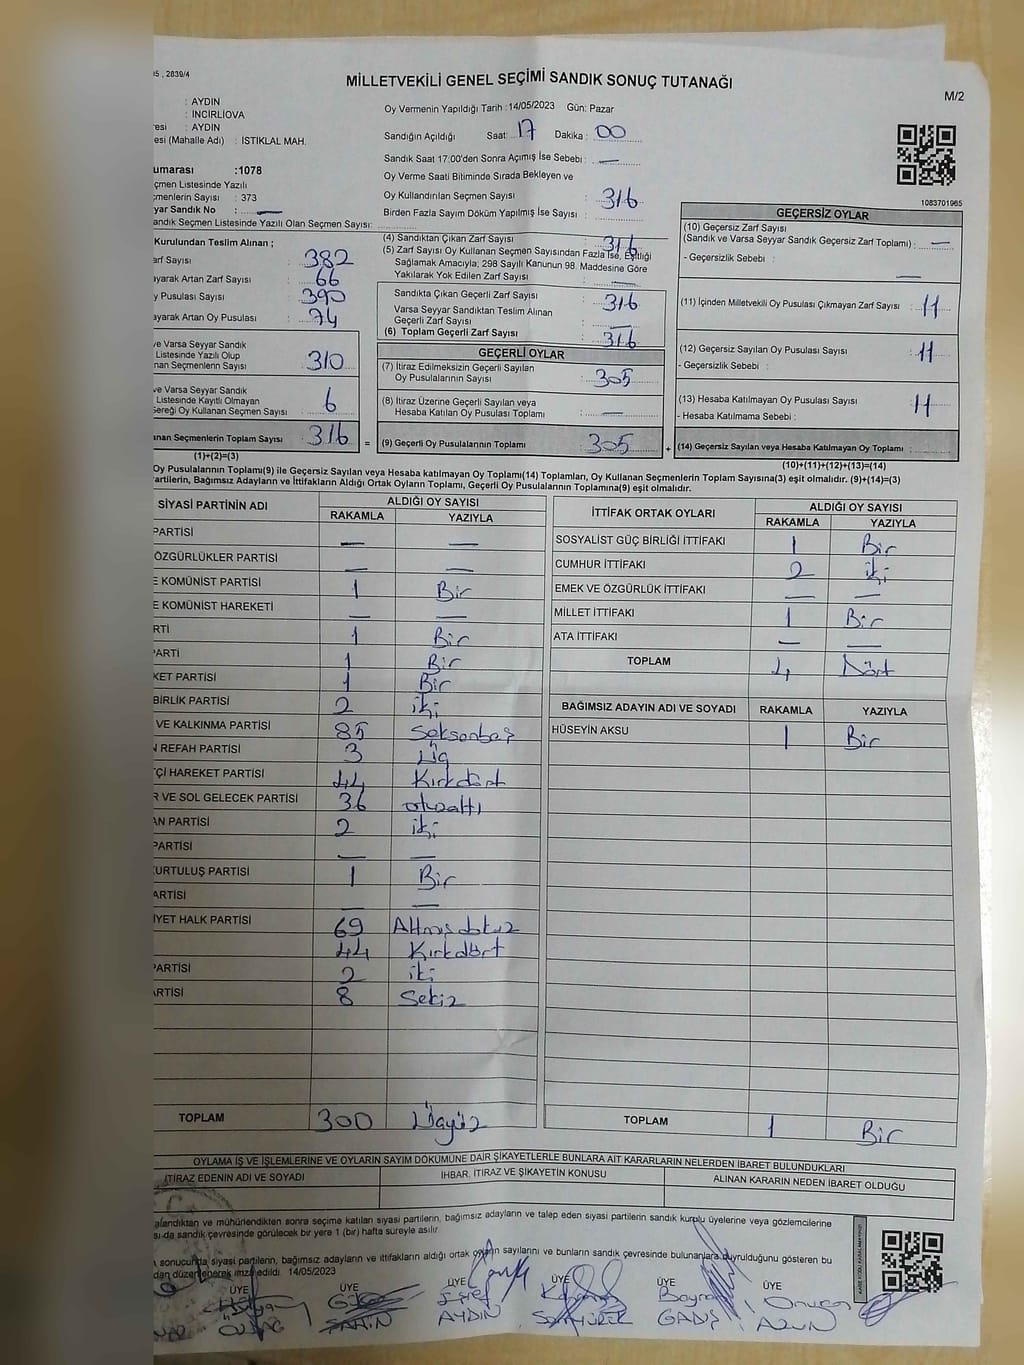 05 , 2839/4
MİLLETVEKİLİ GENEL SEÇİMİ SANDIK SONUÇ TUTANAĞI
M/2
: AYDIN
: İNCİRLİOVA
resi : AYDIN
esi (Mahalle Adı) : İSTİKLAL MAH.
Oy Vermenin Yapıldığı Tarih :14/05/2023 Gün: Pazar
Sandığın Açıldığı Saat: 17 Dakika : 00
Sandık Saat 17.00'den Sonra Açımış İse Sebebi : —
Oy Verme Saati Bitiminde Sırada Bekleyen ve
Oy Kullandırılan Seçmen Sayısı : 316
Birden Fazla Sayım Döküm Yapılmış İse Sayısı :
1083701965
umarası :1078
çmen Listesinde Yazılı
çmenlerin Sayısı : 373
yar Sandık No : —
andık Seçmen Listesinde Yazılı Olan Seçmen Sayısı:
Kurulundan Teslim Alınan ;
arf Sayısı : 382
ayarak Artan Zarf Sayısı : 66
y Pusulası Sayısı : 390
ayarak Artan Oy Pusulası : 74
ve Varsa Seyyar Sandık
Listesinde Yazılı Olup
nan Seçmenlerin Sayısı : 310
ve Varsa Seyyar Sandık
Listesinde Kayıtlı Olmayan
Gereği Oy Kullanan Seçmen Sayısı : 6
anan Seçmenlerin Toplam Sayısı : 316
(1)+(2)=(3)
(4) Sandıktan Çıkan Zarf Sayısı : 316
(5) Zarf Sayısı Oy Kullanan Seçmen Sayısından Fazla İse, Eşitliği
Sağlamak Amacıyla; 298 Sayılı Kanunun 98. Maddesine Göre
Yakılarak Yok Edilen Zarf Sayısı : —
Sandıkta Çıkan Geçerli Zarf Sayısı : 316
Varsa Seyyar Sandıktan Teslim Alınan
Geçerli Zarf Sayısı : —
(6) Toplam Geçerli Zarf Sayısı : 316
GEÇERLİ OYLAR
(7) İtiraz Edilmeksizin Geçerli Sayılan
Oy Pusulalarının Sayısı : 305
(8) İtiraz Üzerine Geçerli Sayılan veya
Hesaba Katılan Oy Pusulası Toplamı : —
= (9) Geçerli Oy Pusulalarının Toplamı : 305
GEÇERSİZ OYLAR
(10) Geçersiz Zarf Sayısı
(Sandık ve Varsa Seyyar Sandık Geçersiz Zarf Toplamı) : —
- Geçersizlik Sebebi : —
(11) İçinden Milletvekili Oy Pusulası Çıkmayan Zarf Sayısı : 11
(12) Geçersiz Sayılan Oy Pusulası Sayısı : 11
- Geçersizlik Sebebi :
(13) Hesaba Katılmayan Oy Pusulası Sayısı : 11
- Hesaba Katılmama Sebebi :
+ (14) Geçersiz Sayılan veya Hesaba Katılmayan Oy Toplamı :
(10)+(11)+(12)+(13)=(14)
Oy Pusulalarının Toplamı(9) ile Geçersiz Sayılan veya Hesaba katılmayan Oy Toplamı(14) Toplamları, Oy Kullanan Seçmenlerin Toplam Sayısına(3) eşit olmalıdır. (9)+(14)=(3)
artilerin, Bağımsız Adayların ve İttifakların Aldığı Ortak Oyların Toplamı, Geçerli Oy Pusulalarının Toplamına(9) eşit olmalıdır.
SİYASİ PARTİNİN ADI ALDIĞI OY SAYISI
RAKAMLA YAZIYLA
PARTİSİ — —
ÖZGÜRLÜKLER PARTİSİ — —
E KOMÜNİST PARTİSİ 1 Bir
E KOMÜNİST HAREKETİ — —
RTİ 1 Bir
PARTİ 1 Bir
KET PARTİSİ 1 Bir
BİRLİK PARTİSİ 2 iki
VE KALKINMA PARTİSİ 85 Seksenbeş
N REFAH PARTİSİ 3 Üç
Çİ HAREKET PARTİSİ 44 Kırkdört
R VE SOL GELECEK PARTİSİ 36 otuzaltı
AN PARTİSİ 2 iki
PARTİSİ — —
URTULUŞ PARTİSİ 1 Bir
ARTİSİ — —
İYET HALK PARTİSİ 69 Altmışdokuz
44 Kırkdört
PARTİSİ 2 iki
ARTİSİ 8 Sekiz
TOPLAM 300 Üçyüz
İTTİFAK ORTAK OYLARI ALDIĞI OY SAYISI
RAKAMLA YAZIYLA
SOSYALİST GÜÇ BİRLİĞİ İTTİFAKI 1 Bir
CUMHUR İTTİFAKI 2 iki
EMEK VE ÖZGÜRLÜK İTTİFAKI — —
MİLLET İTTİFAKI 1 Bir
ATA İTTİFAKI — —
TOPLAM 4 Dört
BAĞIMSIZ ADAYIN ADI VE SOYADI RAKAMLA YAZIYLA
HÜSEYİN AKSU 1 Bir
TOPLAM 1 Bir
OYLAMA İŞ VE İŞLEMLERİNE VE OYLARIN SAYIM DÖKÜMÜNE DAİR ŞİKAYETLERLE BUNLARA AİT KARARLARIN NELERDEN İBARET BULUNDUKLARI
İTİRAZ EDENİN ADI VE SOYADI İHBAR, İTİRAZ VE ŞİKAYETİN KONUSU ALINAN KARARIN NEDEN İBARET OLDUĞU
alandıktan ve mühürlendikten sonra seçime katılan siyasi partilerin, bağımsız adayların ve talep eden siyasi partilerin sandık kurulu üyelerine veya gözlemcilerine
sı da sandık çevresinde görülecek bir yere 1 (bir) hafta süreyle asılır.
sonucunda siyasi partilerin, bağımsız adayların ve ittifakların aldığı ortak oyların sayılarını ve bunların sandık çevresinde bulunanlara duyrulduğunu gösteren bu
dan düzenlenerek imza edildi. 14/05/2023
ÜYE ÜYE ÜYE ÜYE ÜYE ÜYE
AYDIN